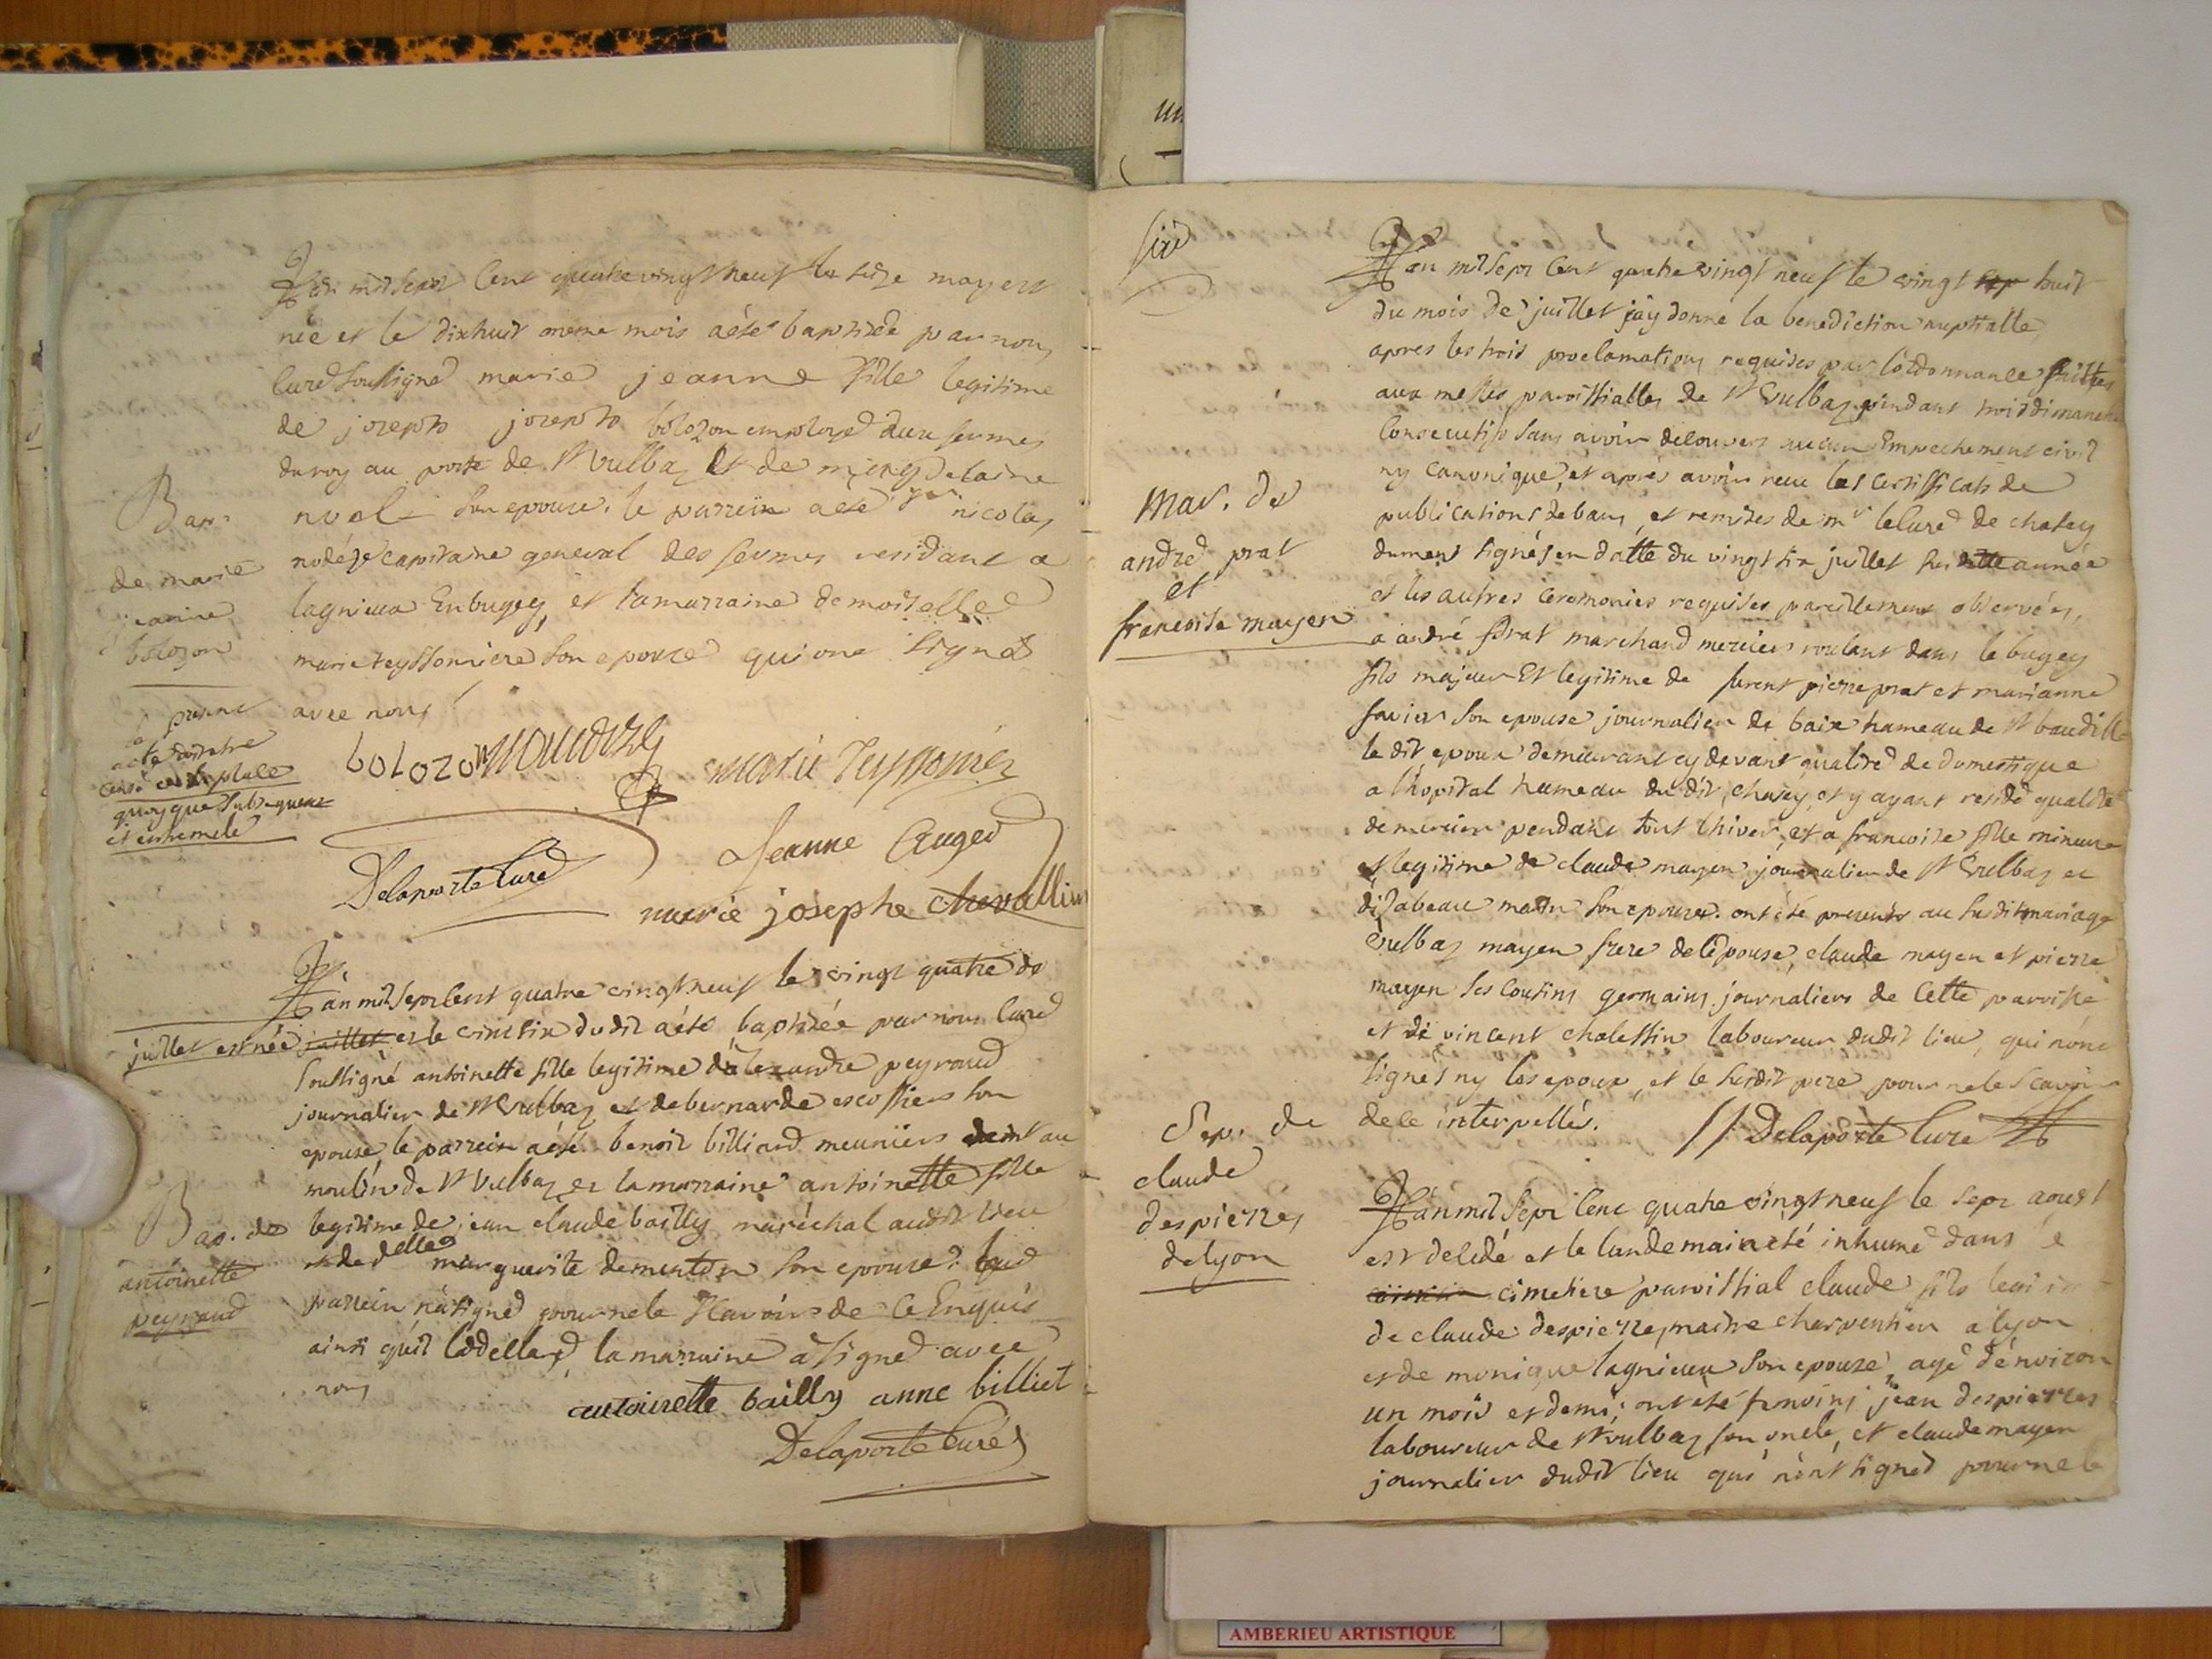 L'an mil sept cent quatre vingt neuf le seize may est
née et le dixhuit meme mois a été baptizée par nous
curé soussigné marie jeanne fille legitime
de joseph joseph bolozon employé dux fermes
du roy au poste de St Vulbaz et de
noel son epouse. le parrein a été nicolas
capitaine general des fermes residant a
lagnieux En bugey, et la marraine demoiselle
marie teyssonniere son epouse qui ont signé
avec nous
Bap.
de marie
jeanne
bolozon
le present
acte doit etre
censé en sa place
quoyque subsequent
et
bolozon
marie Teyssonier
Jeanne Auger
Delaporte Curé
marie josephe chevallier
L'an mil sept cent quatre vingt neuf le vingt quatre de
juillet est née juillet et le vint six dudit a été baptizée par nous curé
soussigné antoinette fille legitime d'alexandre peyraud
journalier de St Vulbaz et de bernarde escoffier son
epouse, le parrein a été benoit billiard meuniers demt au
moulin de St Vulbaz et la marraine antoinette fille
legitime de jean claude bailly maréchal audit lieu
et de delle marguerite dementon son epouse. led
parrein n'a signé pour ne le sçavoir de ce Enquis
ainsi qu'il la marraine a signé avec
nous
Bap. de
antoinette
peyraud
antoinette bailly anne billiet
Delaporte Curé
six
L'an mil sept cent quatre vingt neuf le vingt sep huit
du mois de juillet j'ay donné la benediction nuptialle
apres les trois proclamations requises par l'ordonnance faittes
aux messes paroissialles de St Vulbaz pendant trois dimanches
consecutifs sans avoir decouvert aucun Empechement civil
ny canonique, et après avoir reçu les certifficats de
publications de bans, et remises de mr le Curé de chazey
dument signés en datte du vingt six juillet susditte année
et les autres ceremonies requises pareillement observées,
a andré prat marchand mercier roulant dans le bugey
fils majeur Et legitime de furent pierre prat et marianne
favier son epouse journalier de baix hameau de St baudille
le dit epoux demeurant cy devant qualité de domestique
a l'hopital hameau dudit chazey, et y ayant residé qualité
de mercier pendant tout l'hiver, et a francoise fille mineure
et legitime de claude mayen journalier de St Vulbaz et
d'isabeau matin son epouse. ont été presents au susdit mariage
Vulbaz mayen frere de l'epouse, claude mayen et pierre
mayen ses cousins germains journaliers de cette parroisse
et de vincent chalessin laboureur dudit lieu, qui n'ont
signés ny les epoux, et le susdit pere pour ne le scavoir
de ce interpellés. // Delaporte Curé
mar. de
andré prat
et
francoise mayen
Sep. de
claude
despierres
de lyon
L'an mil Sept Cent quatre vingt neuf le sept aoust
est decedé et le landemain a été inhumé dans le
cimetiere paroissial claude fils legitime
de claude despierres, maitre charpentier a lyon
et de monique lagnieux son epouse, agé d'environ
un mois et demi; ont été temoins jean despierres
laboureur de St vulbaz son oncle, et claude mayen
journalier dudit lieu qui n'ont signé pour ne le
AMBERIEU ARTISTIQUE